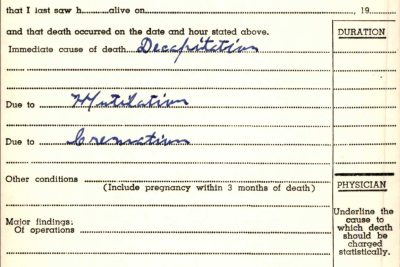 that I last saw h............alive on............................................................, 19......
and that death occurred on the date and hour stated above.
DURATION
Immediate cause of death Decapitation
Due to Mutilation
Due to Cremation
Other conditions
(Include pregnancy within 3 months of death)
PHYSICIAN
Major findings:
Of operations
Underline the cause to which death should be charged statistically.